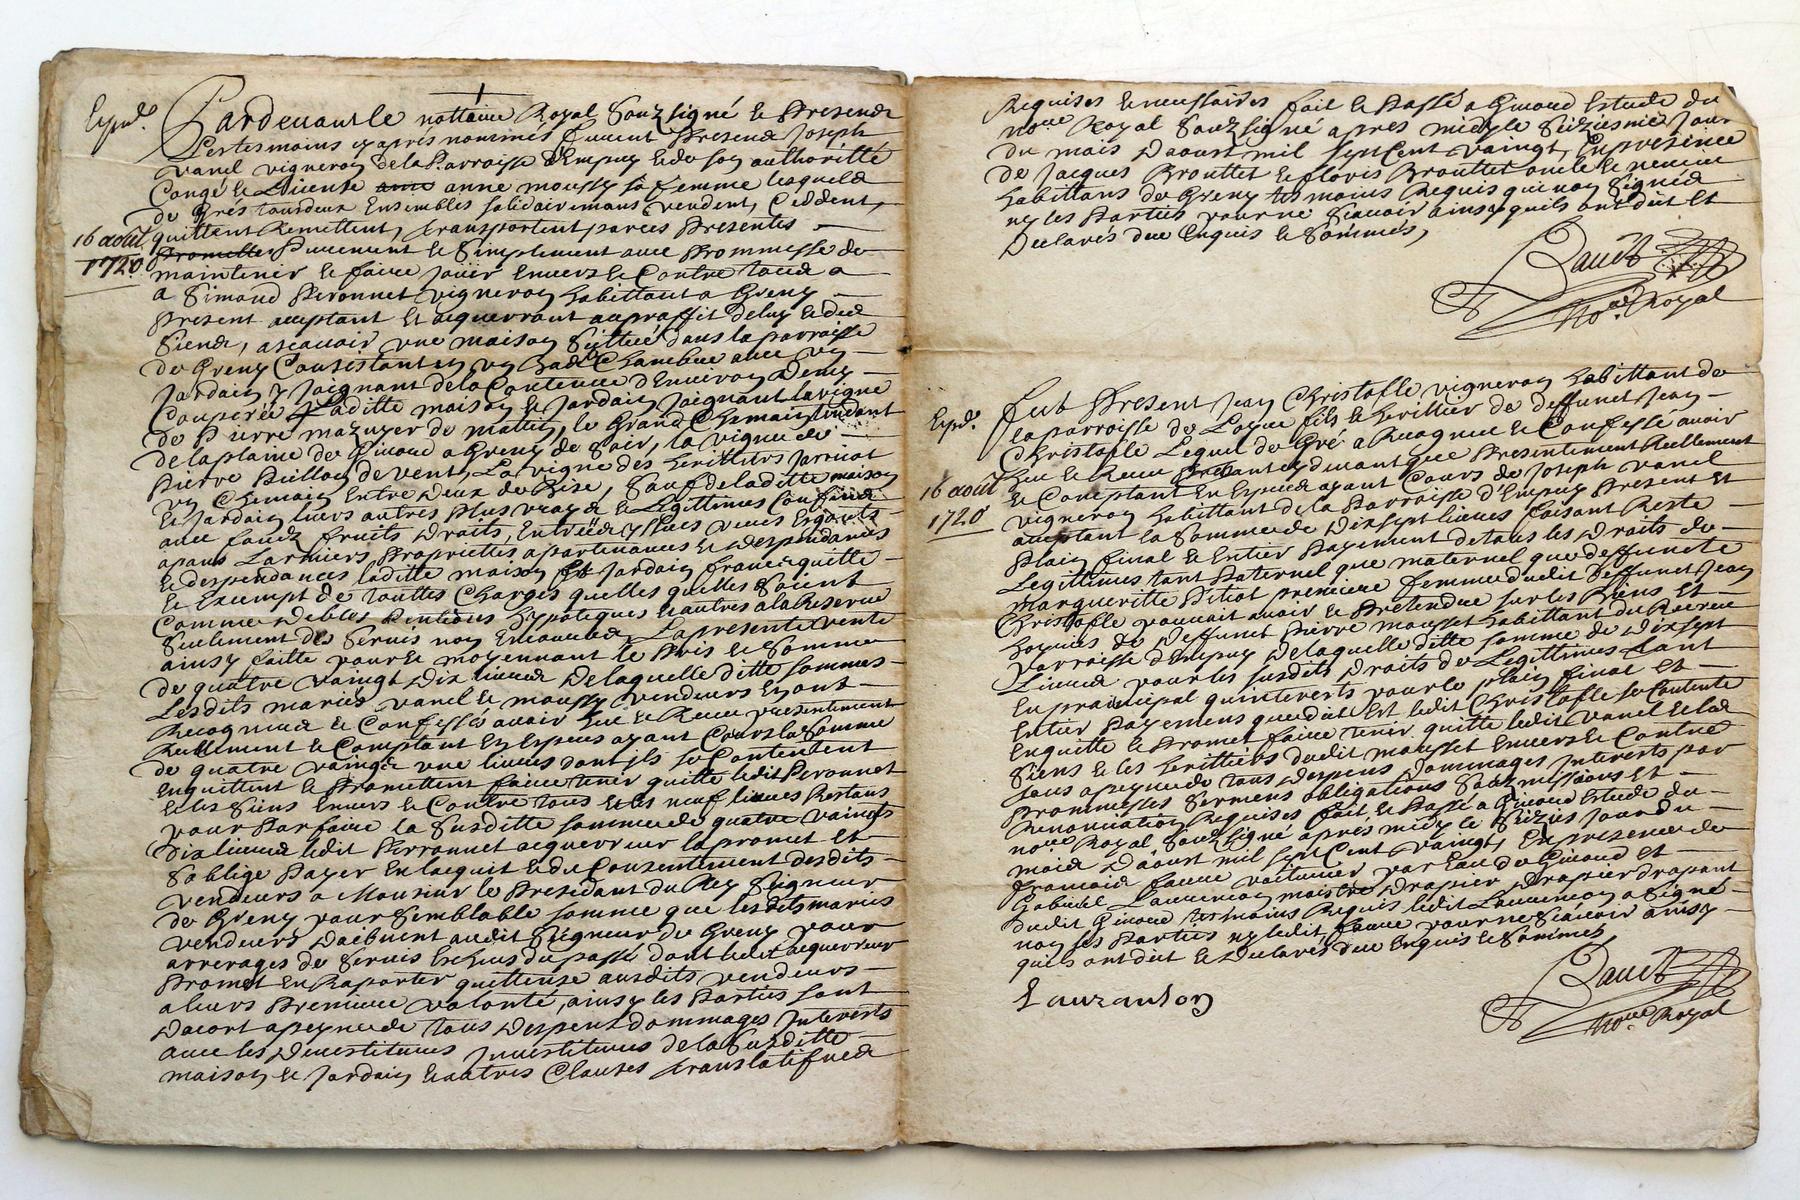 Expéd.
Pardevant le nottaire Royal Souzsigné et Presendz
Les tesmoins cy aprés nommés furent Present Joseph
Vanel vigneron de la Parroisse d'Empuy et de son authoritté
Congé et License anne moussy sa femme lesquels
de Grés tous deux Ensembles solidairemans vendent, Ceddent,
16 août
1720
quittent Remettent, transportent par ces Presentes
Purement et Simplement avec Prommesse de
maintenir et faire Jouir Envers et Contre tous a
a Simond Peronnet vigneron habittant a Greny
Present acceptant et acquerrant au proffit de luy et des
Siens, ascavoir une maison Sittuée dans la parroisse
de Greny Consistant en un bad Chambre avec un
Jardain y Joignant de la Contenue d'Environ demy
Couperée Laditte maison et Jardain Joignant la vigne
de Pierre mazuyer de mattin, le Grand Chemain tendant
de la plaine de Givord a Greny de Soir, la vigne de
Pierre Pillon de vent, La vigne des heritters Jarricot
un Chemain Entre deux de Bise, Sauf de laditte maison
et Jardain leurs autres plus vrays et Legittimes Confins
avec fondz fruits Droits, Entrées yssues vues Esgouts
Proprietés apartenances et despendances
et despendances laditte maison et Jardain franc quitte
et Exempt de touttes Charges quelles quelles Soient
Comme debtes Pentions hypoteques et autres a la Reserve
Seulement des Servis non La presente vente
ainsy faitte pour et moyennant le Prix et Somme
de quatre vaingt dix livres De laquelle ditte Somme
Lesdits mariés vanel et moussy vendeurs En ont
Recognus et Confessés avoir heu et Receu presentement
Reellement et Comptant En Especes ayant Cours la Somme
de quatre vaingt une livres dont ils se Contentent
Enquittent et Promettent faire tenir quitte ledit Peronnet
et les Siens Envers et Contre tous et les neuf livres Restans
pour Parfaire la Susditte Somme de quatre vaingts
dix livres ledit Perronnet acquerreur la promet et
S'oblige Payer En lacquit et du Consentement desdits
vendeurs a Monsieur le Presidant du Rey Seigneur
de Greny pour Semblable Somme que lesdits mariés
vendeurs doibvent audit Seigneur de Greny pour
arrerages de Servis Escheus du passé dont ledit acquerreur
Promet En Raporter quittense ausdits vendeurs
a leurs Premiere volonté, ainsy les Parties Sont
Dacort a peyne de tous despens dommages Interests
avec les Devestitures Jnvestitures de la Susditte
maison et Jardain et autres Clauses translatifves
Requises et necessaires fait et Passé a Givord Estude du
nore Royal Souzsigné apres midy le Seiziesme Jour
du mois Daoust mil Sept Cent vaingt, En presence
de Jacques Brouttet et Clovis Brouttet oncle et neveu
habittans de Greny tesmoins Requis qui nont Signés
ny les Parties pour ne Scavoir ainsy quils ont dit et
Declarés due Enquis et Sommés,
noe. Royal
Expéd.
16 août
1720
fut Present Jean Christofle vigneron habittant de
la parroisse de Loyre fils et heritier de deffunct Jean
Christofle Lequel de Gré a Recognu et Confessé avoir
heu et Receu Presentement Reellement
et Comptant En Especes ayant Cours de Joseph vanel
vigneron habittant de la Parroisse d'Empuy Present et
acceptant la Somme de Dixsept livres faisant Reste
Plain final et Entier Payement de tous les Droits de
Legittimes tant Paternel que maternel que deffuncte
Margueritte Pitiot premiere femme dudit Deffunct Jean
Christofle pouvait avoir et Pretendre sur les Biens et
hoyries de Deffunct Pierre mousset habittant du
Parroisse d'Empuy De laquelle ditte Somme de Dixsept
Livres pour les susdits Droits de Legittimes tant
En praincipal quinterests pour le plain final et
Entier Payemens que dit Est ledit Christofle se Contente
Enquitte et Promet faire tenir quitte ledit vanel et les
Siens et les heritiers dudit mousset Envers et Contre
tous a peyne de tous despens Dommages Interests par
Prommesses Sermens obligations Souzmissions et
Renonciation Requises fait et Passé a Givord Estude du
nore Royal Souzsigné apres midy le Seize Jour du
mois Daoust mil Sept Cent vaingt, En presence de
francois faure voiturier par Eau de Givord et
Gabriel Laurencon maistre Drapier Drapant
dudit Givord tesmoins Requis ledit Laurencon a Signé
non les Parties ny ledit faure pour ne Scavoir ainsy
quils ont dit et Declarés due Enquis et Sommés
Lauranson
nore. Royal